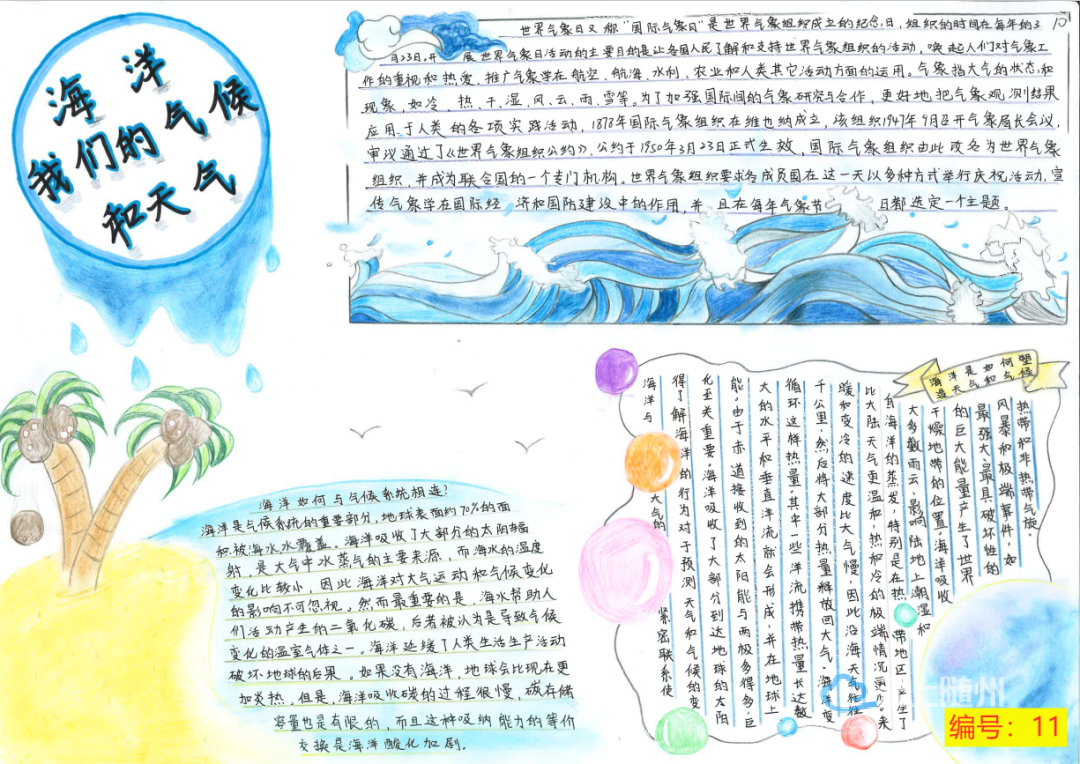 海洋
我们的气候
和天气
世界气象日又称"国际气象日"是世界气象组织成立的纪念日,组织的时间在每年的3
10
月23日,开展世界气象日活动的主要目的是让各国人民了解和支持世界气象组织的活动,唤起人们对气象工
作的重视和热爱,推广气象学在航空、航海、水利、农业和人类其它活动方面的运用。气象指大气的状态和
现象,如冷、热、干、湿、风、云、雨、雪等。为了加强国际间的气象研究与合作,更好地把气象观测结果
应用于人类的各项实践活动,1878年国际气象组织在维也纳成立,该组织1947年9月召开气象局长会议,
审议通过了《世界气象组织公约》,公约于1950年3月23日正式生效,国际气象组织由此改名为世界气象
组织,并成为联合国的一个专门机构。世界气象组织要求各成员国在这一天以多种方式举行庆祝活动,宣
传气象学在国际经济和国防建设中的作用,并且在每年气象节日都选定一个主题。
海洋是如何塑
造天气和气候
海洋与大气的紧密联系使
得了解海洋的行为对于预测天气和气候的变
化至关重要,海洋吸收了大部分到达地球的太阳
能,由于赤道接收到的太阳能与两极多得多,巨
大的水平和垂直洋流就会形成,并在地球上
循环这样热量,其中一些洋流携带热量长达数
千公里,然后将大部分热量释放回大气,海洋变
暖和变冷的速度比大气慢,因此沿海天气往往
比大陆天气更温和,热和冷的极端情况更少。来
自海洋的蒸发,特别是在热带地区,产生了
大多数雨云,影响陆地上潮湿和
干燥地带的位置,海洋吸收
的巨大能量产生了世界
最强大、最具破坏性的
风暴和极端事件,如
热带和非热带气旋。
海洋如何与气候系统相连?
海洋是气候系统的重要部分,地球表面约70%的面
积被海水水覆盖。海洋吸收了大部分的太阳辐
射,是大气中水蒸气的主要来源,而海水的温度
变化比较小,因此海洋对大气运动和气候变化
的影响不可忽视。然而最重要的是,海水帮助人
们活动产生的二氧化碳,后者被认为是导致气候
变化的温室气体之一。海洋延缓了人类生活生产活动
破坏地球的后果。如果没有海洋,地球会比现在更
加炎热。但是,海洋吸收碳的过程很慢,碳存储
容量也是有限的,而且这种吸纳能力的等价
交换是海洋酸化加剧。
上随州
编号:11